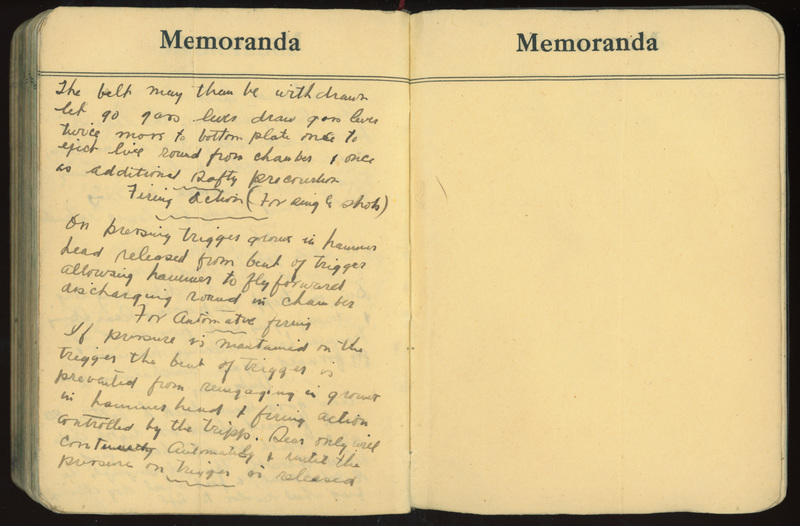 Memoranda
The belt may than be withdrawn
let go gass lever draw gass lever
twice more to bottom plate once to
eject live round from chamber & once
as additional Safty precaustion
Firing Action (For single shots)
On pressing trigger groove in hammer
head released from bent of trigger
allowing hammer to fly forward
discharging round in chamber
For Automatic firing
If pressure is maintained on the
trigger the bent of trigger is
prevented from reingaging in groove
in hammer head & firing action
controlled by the tripp. Sear only will
Automatily & until the
pressure on trigger is released
Memoranda